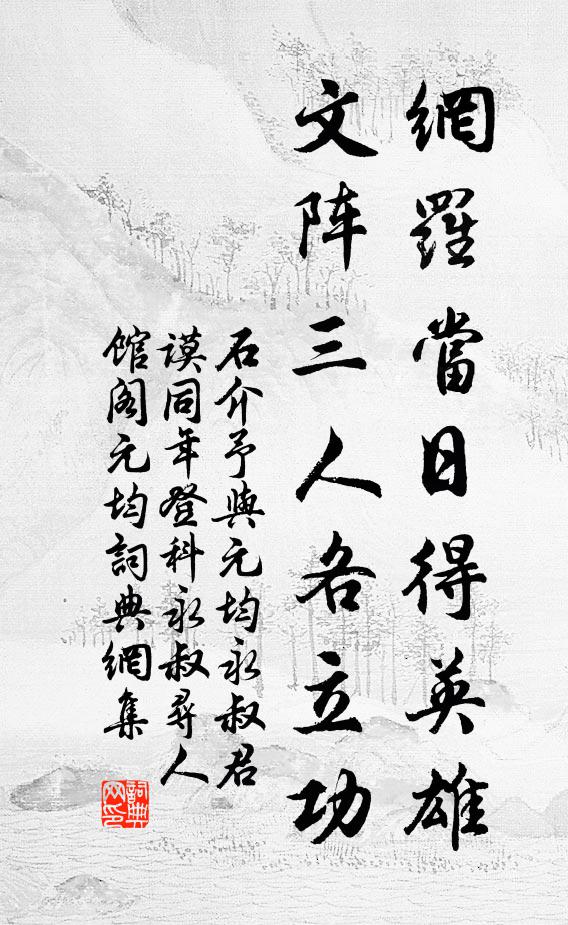 網羅當日得英雄
文阵三人各立功
石介予與元均永叔君
謨同年登科永叔尋人
馆阁元均詞典網集
詞典
网印